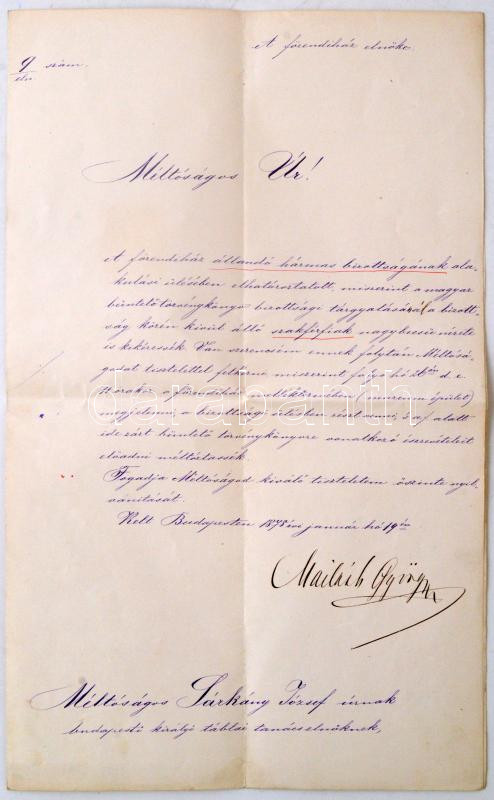 A főrendiház elnöke.
9 szám.
eln.
Méltóságos Úr!
A főrendiház állandó hármas bizottságának ala-
kulási ülésében elhatároztatott, miszerint a magyar
büntetőtörvénykönyv bizottsági tárgyalásánál a bizott-
ság körén kivül álló szakférfiak nagybecsü nézete
is kikéressék. Van szerencsém ennek folytán Méltósá-
godat tisztelettel felkérni miszerint folyó hó d. e.
órakor a főrendiház termében (muzeum épület)
megjelenni, a bizottsági ülésben részt venni, s az alatt
ide zárt büntető törvénykönyvre vonatkozó észrevételeit
előadni méltóztassék.
Fogadja Méltóságod kiváló tiszteletem őszinte nyil-
vánitását.
Kelt Budapesten 1878 évi január hó 19 én
Mailáth György
Méltóságos Sárkány József úrnak
budapesti királyi táblai tanácselnöknek,
darabanth